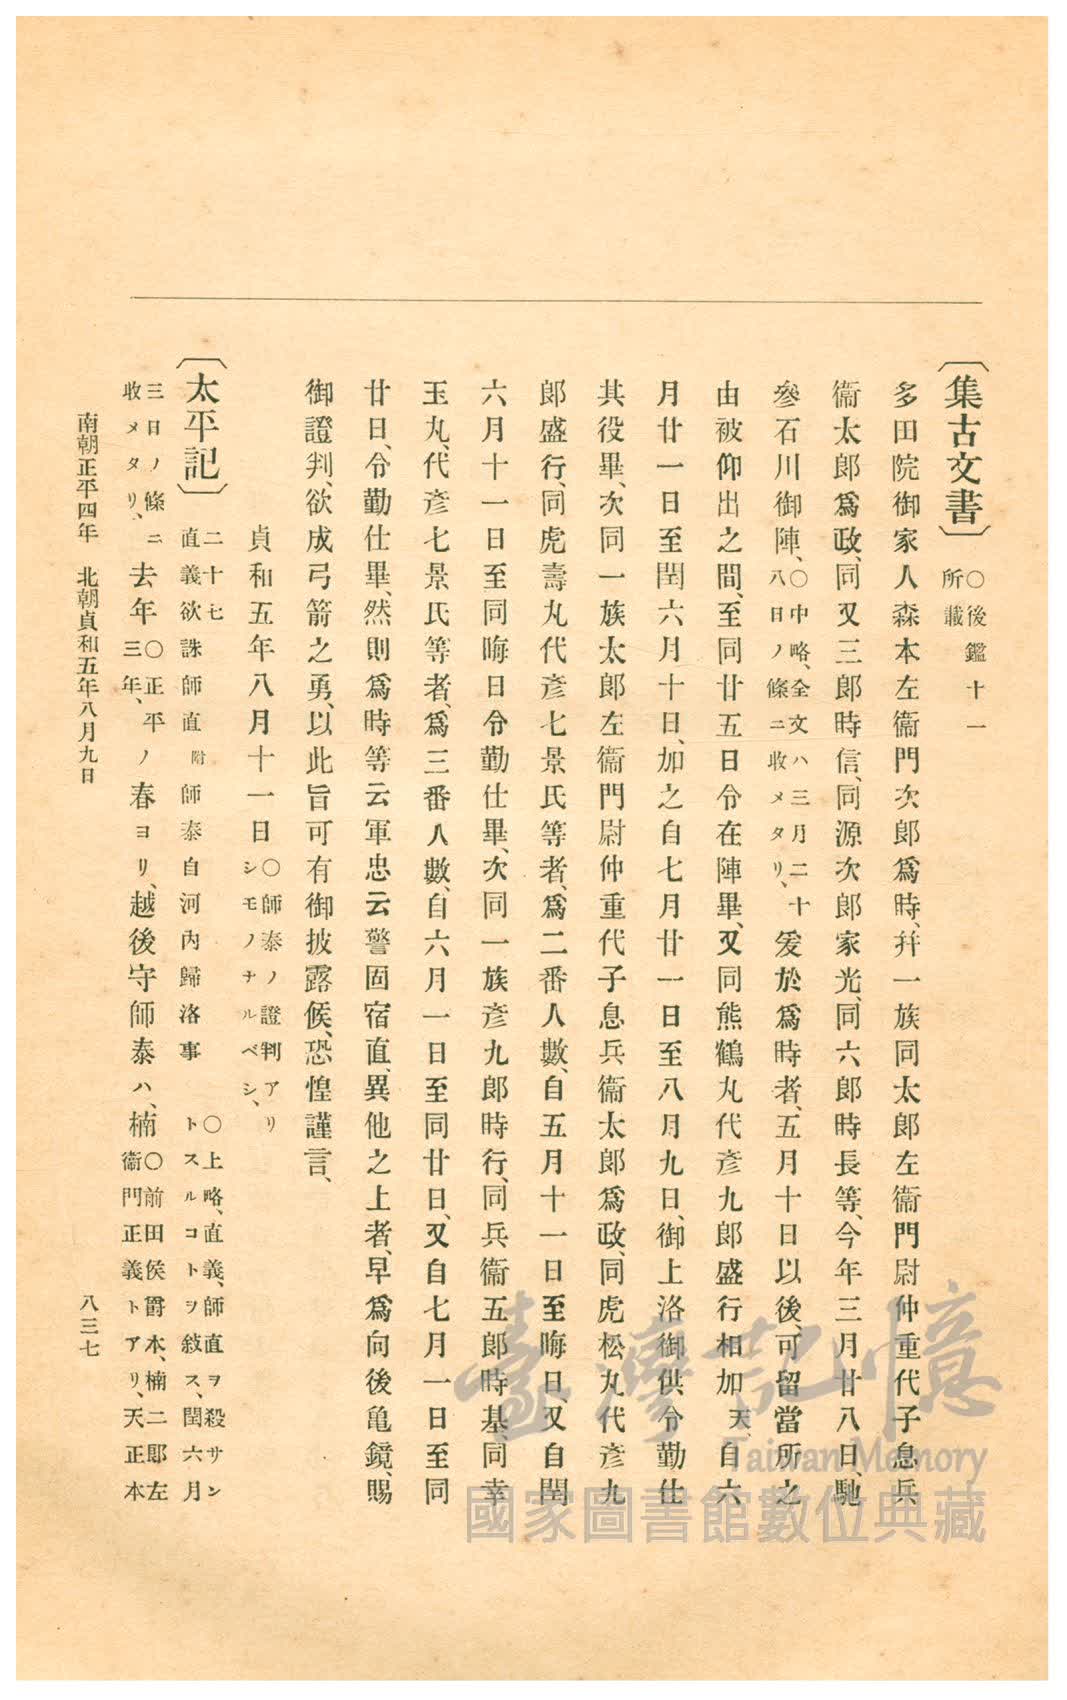 〔集古文書〕 〇後鑑十一所載
多田院御家人森本左衞門次郎爲時、幷一族同太郎左衞門尉仲重代子息兵
衞太郎爲政、同又三郎時信、同源次郎家光、同六郎時長等、今年三月廿八日、馳
參石川御陣、〇中略、全文ハ三月二十八日ノ條ニ收メタリ、爰於爲時者、五月十日以後、可留當所之
由被仰出之間、至同廿五日令在陣畢、又同熊鶴丸代彥九郎盛行相加天、自六
月廿一日至閏六月十日、加之自七月廿一日至八月九日、御上洛御供令勤仕
其役畢、次同一族太郎左衞門尉仲重代子息兵衞太郎爲政、同虎松丸代彥九
郎盛行、同虎壽丸代彥七景氏等者、爲二番人數、自五月十一日至晦日、又自閏
六月十一日至同晦日令勤仕畢、次同一族彥九郎時行、同兵衞五郎時基、同幸
玉丸、代彥七景氏等者、爲三番人數、自六月一日至同廿日、又自七月一日至同
廿日、令勤仕畢、然則爲時等云軍忠云警固宿直、異他之上者、早爲向後亀鏡、賜
御證判、欲成弓箭之勇、以此旨可有御披露候、恐惶謹言、
貞和五年八月十一日 〇師泰ノ證判アリシモノナルベシ、
〔太平記〕 二十七 直義欲誅師直附師泰自河內歸洛事 〇上略、直義、師直ヲ殺サントスルコトヲ敍ス、閏六月
三日ノ條ニ收メタリ、去年〇正平三年、ノ春ヨリ、越後守師泰ハ、楠〇前田侯爵本、楠二郎左衞門正義トアリ、天正本
南朝正平四年 北朝貞和五年八月九日
八三七
臺灣記憶
Taiwan Memory
國家圖書館數位典藏